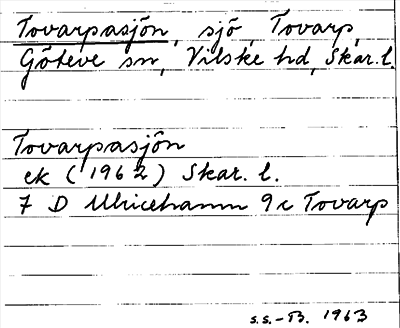 Tovarpasjön, sjö, Tovarp,
Göteve sn, Vilske hd, Skar. l.
Tovarpasjön
ek (1962) Skar. l.
7 D Ulricehamn 9c Tovarp
s.s.-B. 1963